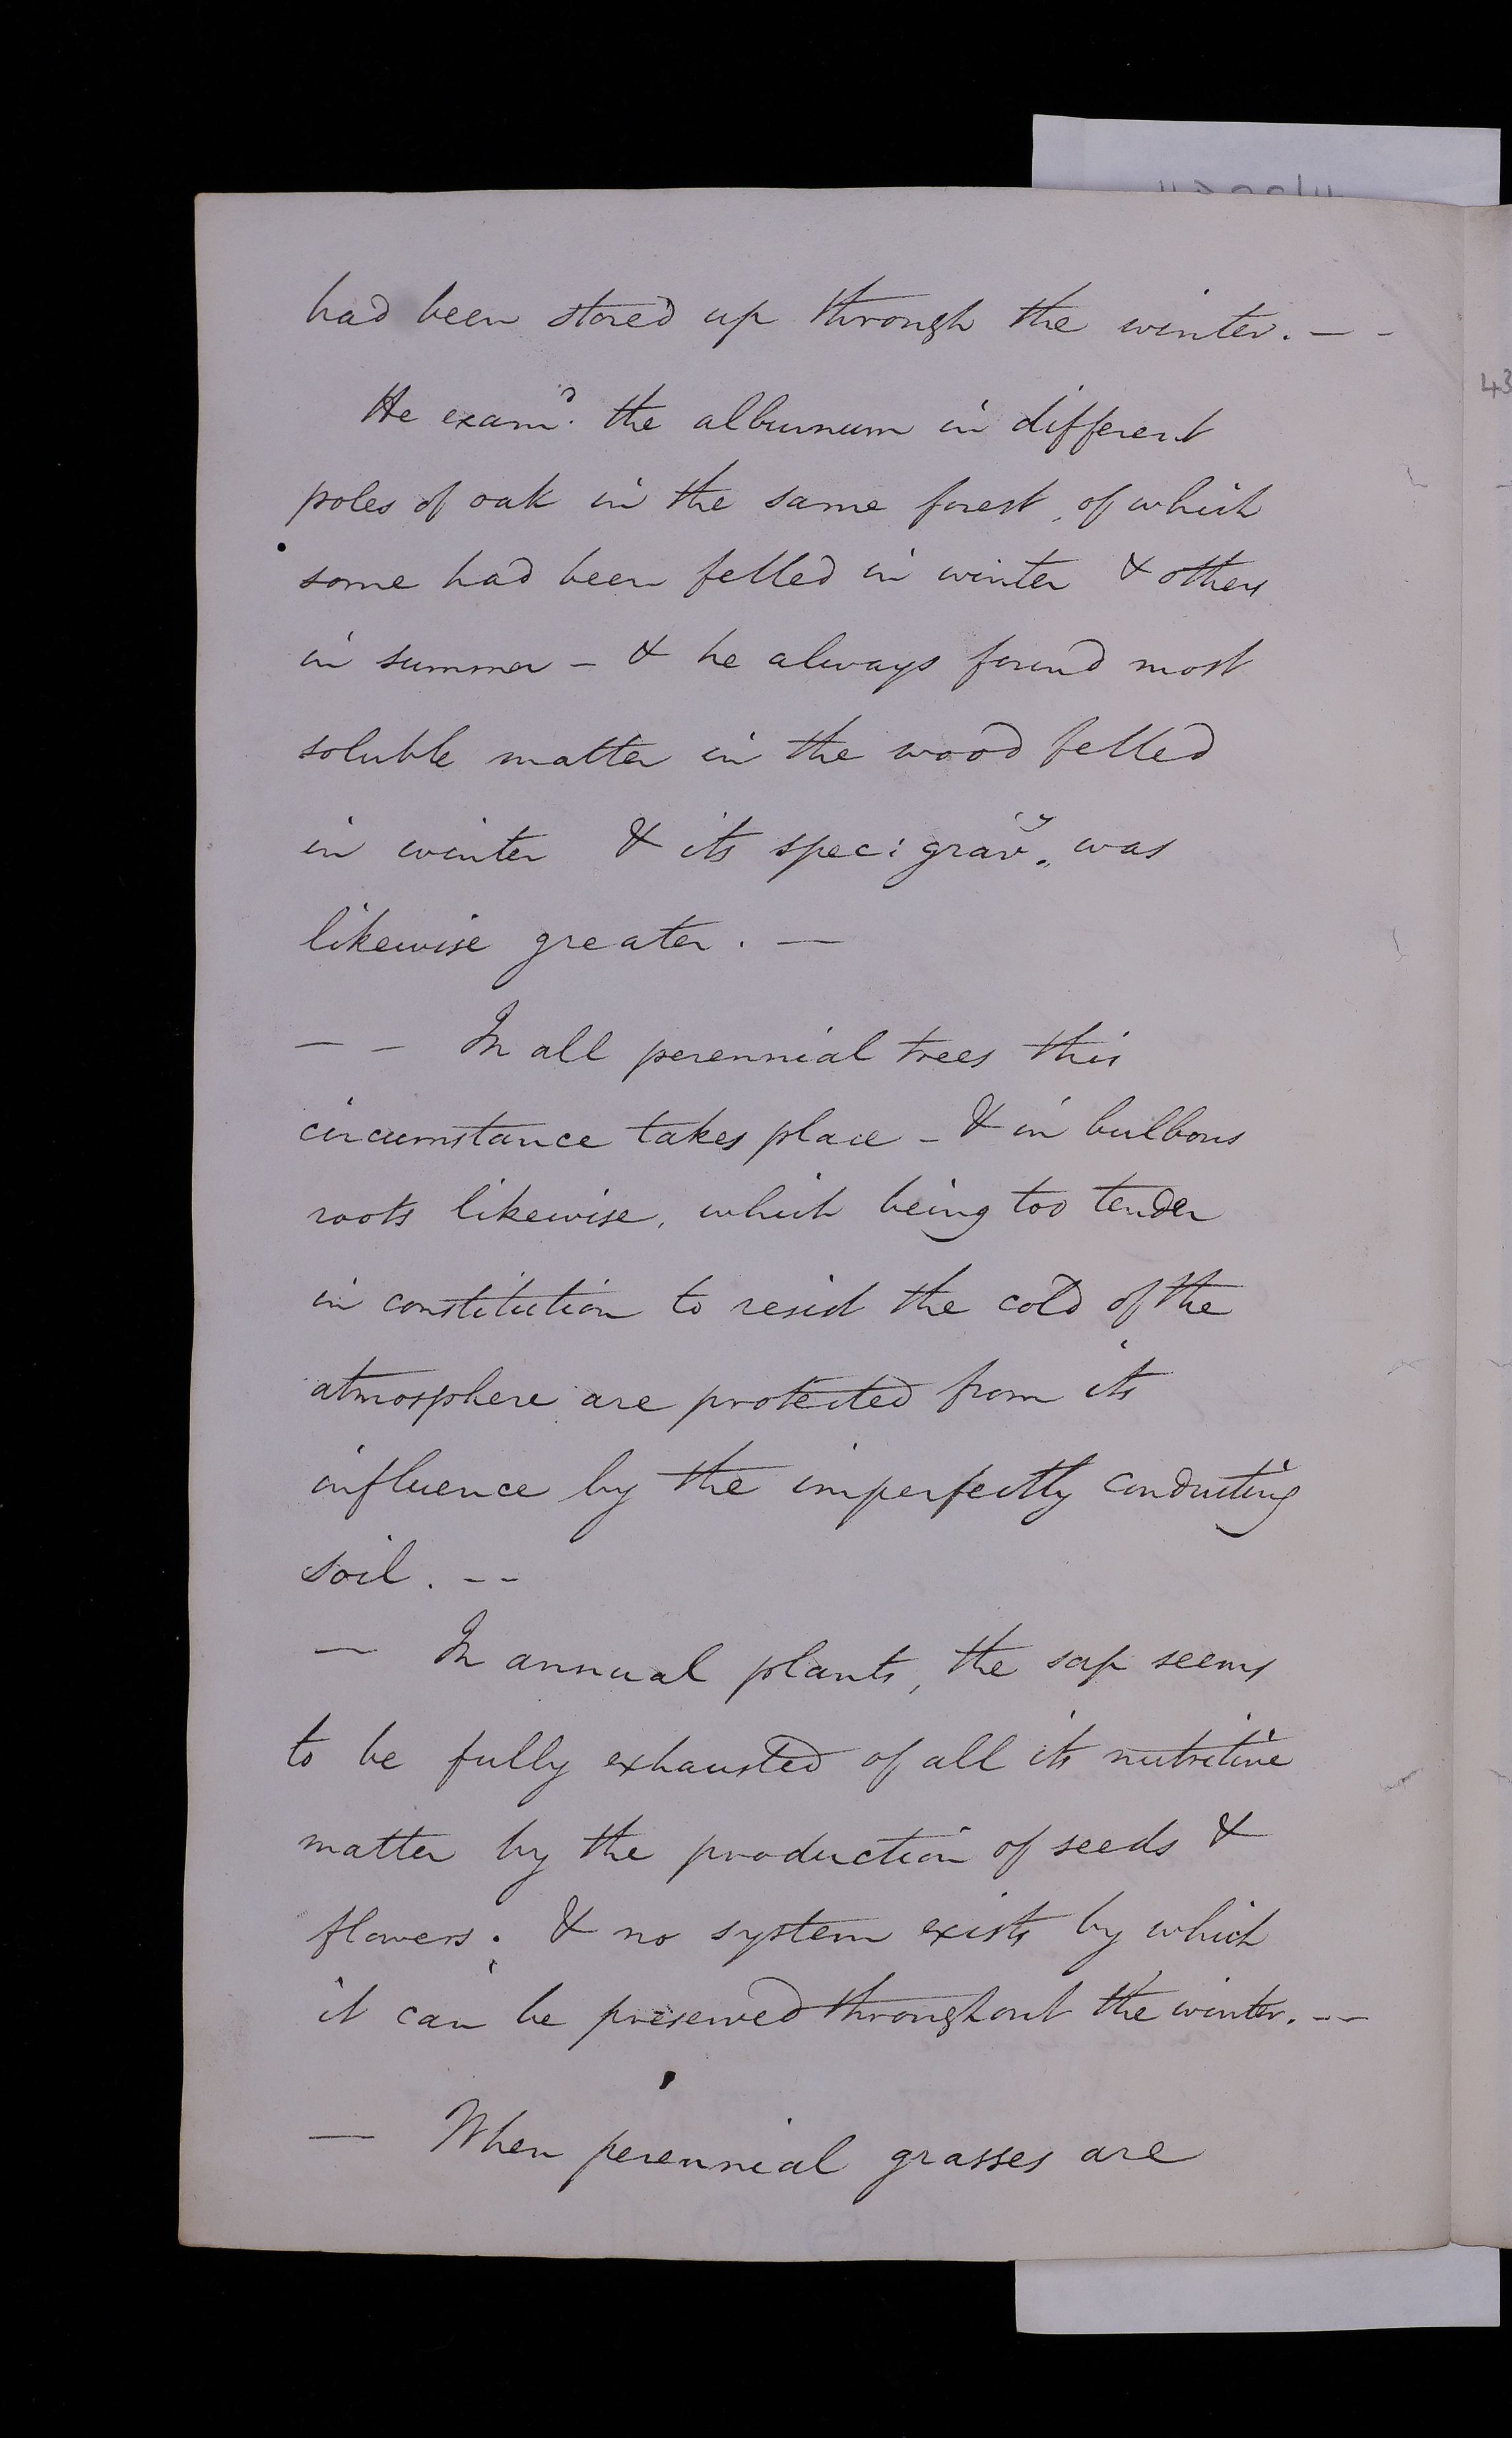 had been stored up through the winter. — -
He examd. the alburnum in different
poles of oak in the same forest, of which
some had been felled in winter & others
in summer - & he always found most
soluble matter in the wood felled
in winter & its spec: gravy. was
likewise greater. —
— - In all perennial trees this
circumstance takes place - & in bulbous
roots likewise, which being too tender
in constitution to resist the cold of the
atmosphere are protected from its
influence by the imperfectly conducting
soil. --
— In annual plants, the sap seems
to be fully exhausted of all its nutritive
matter by the production of seeds &
flowers. & no system exists by which
it can be preserved throughout the winter. --
— When perennial grasses are
43